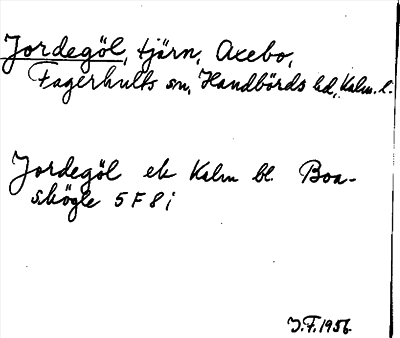 Jordegöl, tjärn, Axebo,
Fagerhults sn, Handbörds hd, Kalm. l.
Jordegöl ek Kalm bl. Boa-
skögle 5 F 8 i
J.F. 1956